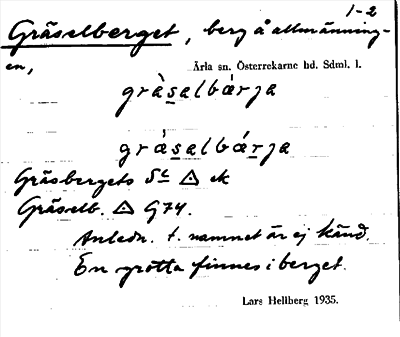 1-2
Gräselberget, berg å allmänning-
en,
Ärla sn. Österrekarne hd. Sdml. l.
gràsalbárja
gràsalbárja
Gräsbergets ek
Gräselb. △ G74.
Anledn. t. namnet är ej känd.
En grotta finnes i berget.
Lars Hellberg 1935.